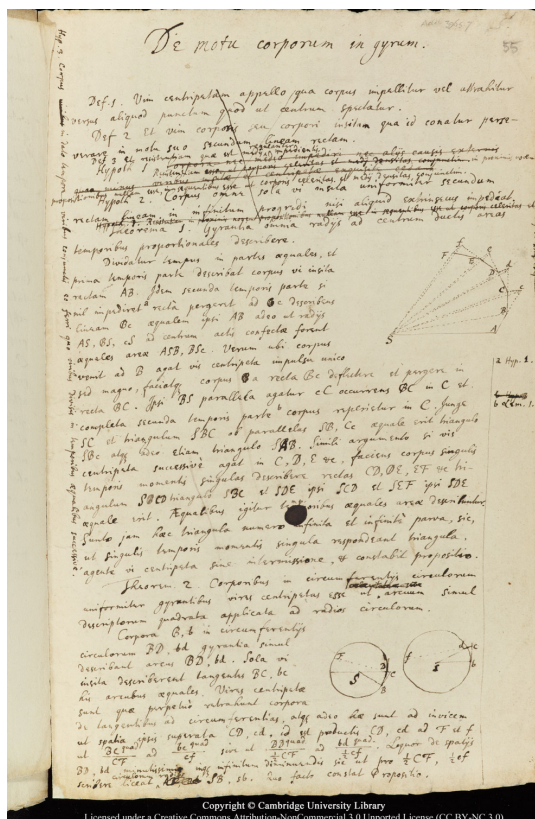 De motu corporum in gyrum.
55
Def. 1. Vim centripetam appello qua corpus impellitur vel attrahitur
versus aliquod punctum quod ut centrum spectatur.
Def 2 Et vim corporis seu corpori insitam qua id conatur perse-
verare in motu suo secundum lineam rectam.
Hypoth 2. Corpus omne sola vi insita uniformiter secundum
rectam lineam in infinitum progredi nisi aliquid extrinsecus impediat.
Theorema 1. Gyrantia omnia radijs ad centrum ductis areas
temporibus proportionales describere.
Dividatur tempus in partes æquales, et
prima temporis parte describat corpus vi insita
rectam AB. Idem secunda temporis parte si
nil impediret recta pergeret ad c describens
lineam Bc æqualem ipsi AB adeo ut radijs
AS, BS, cS ad centrum actis confectæ forent
æquales areæ ASB, BSc. Verum ubi corpus
venit ad B agat vis centripeta impulsu unico
sed magno, faciatq corpus a recta Bc deflectere et pergere in
recta BC. Ipsi BS parallela agatur cC occurrens BC in C et
completa secunda temporis parte corpus reperietur in C. Junge
SC et triangulum SBC ob parallelas SB, Cc æquale erit triangulo
SBc atq adeo etiam triangulo SAB. Simili argumento si vis
centripeta successivè agat in C, D, E &c, faciens corpus singulis
temporis momentis singulas describere rectas CD, DE, EF &c tri-
angulum SCD triangulo SBC et SDE ipsi SCD et SEF ipsi SDE
æquale erit. Æqualibus igitur temporibus æquales areæ describuntur.
Sunto jam hæc triangula numero infinita et infinitè parva, sic,
ut singulis temporis momentis singula respondeant triangula,
agente vi centripeta sine intermissione, & constabit propositio.
Theorem. 2. Corporibus in circumferentijs circulorum
uniformiter gyrantibus vires centripetas esse ut arcuum simul
descriptorum quadrata applicata ad radios circulorum.
Corpora B, b in circumferentijs
circulorum BD, bd gyrantia simul
describant arcus BD, bd. Sola vi
insita describerent tangentes BC, bc
his arcubus æquales. Vires centripetæ
sunt quæ perpetuo retrahunt corpora
de tangentibus ad circumferentias, atq adeo hæ sunt ad invicem
ut spatia ipsis superata CD, cd, id est productis CD, cd ad F et f
ut BC quad / CF ad bc quad / cf sive ut BD quad / ½CF ad bd quad / ½cf. Loquor de spatijs
BD, bd minutissimis inq infinitum diminuendis sic ut pro ½CF, ½cf
scribere liceat circulorum radios SB, sb. Quo facto constat Propositio.
a Hyp. 1.
b Lem. 1.
S
A
B
C
D
E
F
Copyright © Cambridge University Library
Licensed under a Creative Commons Attribution-NonCommercial 3.0 Unported License (CC BY-NC 3.0)